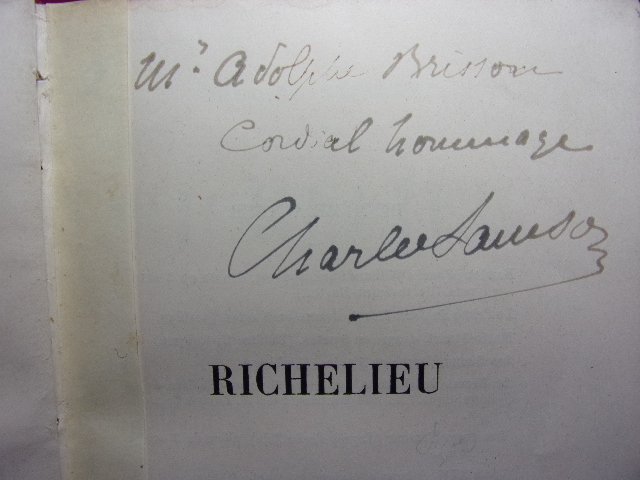 Mr Adolphe Brisson
Cordial hommage
Charles Samson
RICHELIEU